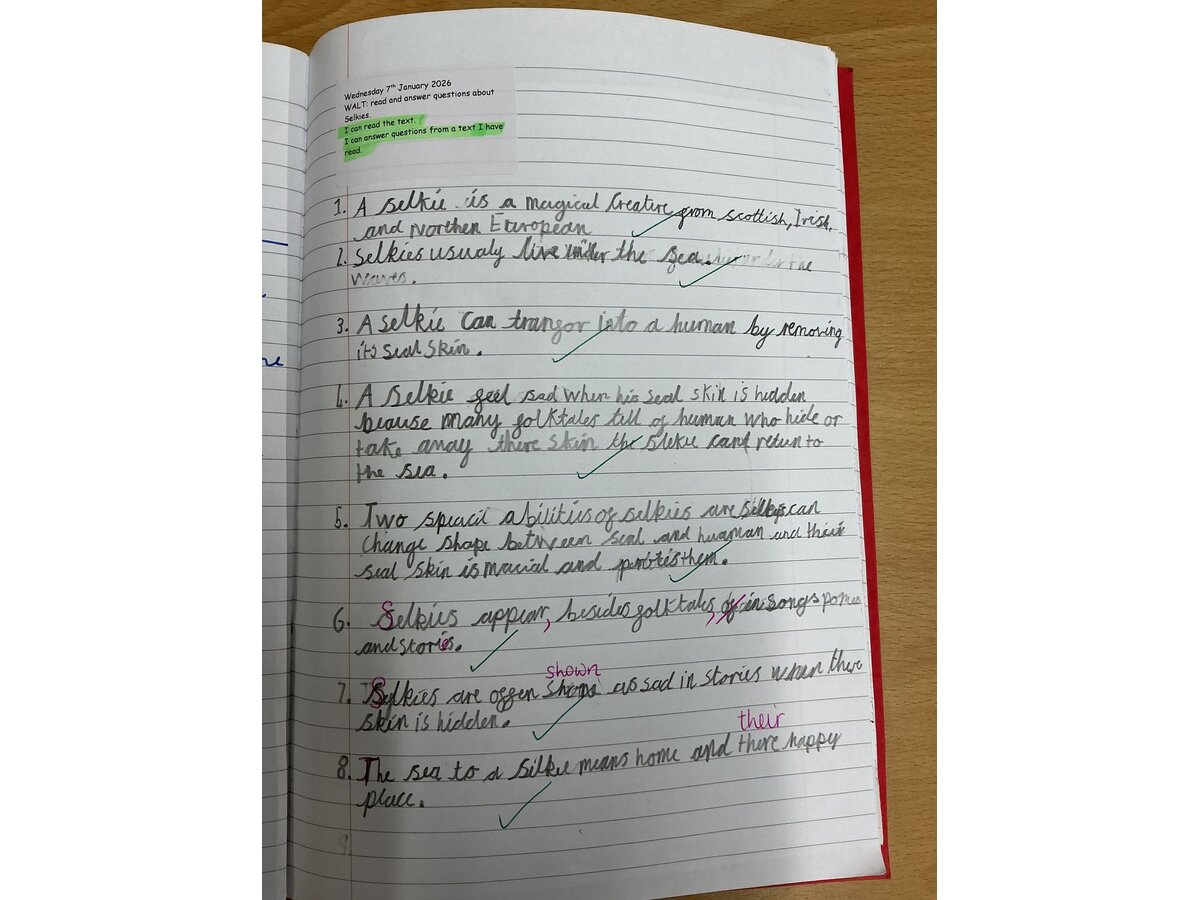 Wednesday 7th January 2026
WALT: read and answer questions about
Selkies.
I can read the text.
I can answer questions from a text I have
read.
1. A selkie is a magical Creature from scottish, Irish,
and Northen European
2. Selkies usualy live under the sea.
waves.
3. A selkie can transfor into a human by removing
its seal skin.
4. A selkie feel sad when his seal skin is hidden
because many folktales tell of human who hide or
take away there skin the slekie cant return to
the sea.
5. Two speacil abilities of selkies are can
change shape between seal and huaman and their
seal skin is macial and them.
6. Selkies appear, besides folktales, in songs pomes
and stories.
shown
7. Selkies are offen as sad in stories when there
skin is hidden.
their
8. The sea to a silkie means home and there happy
place.
9